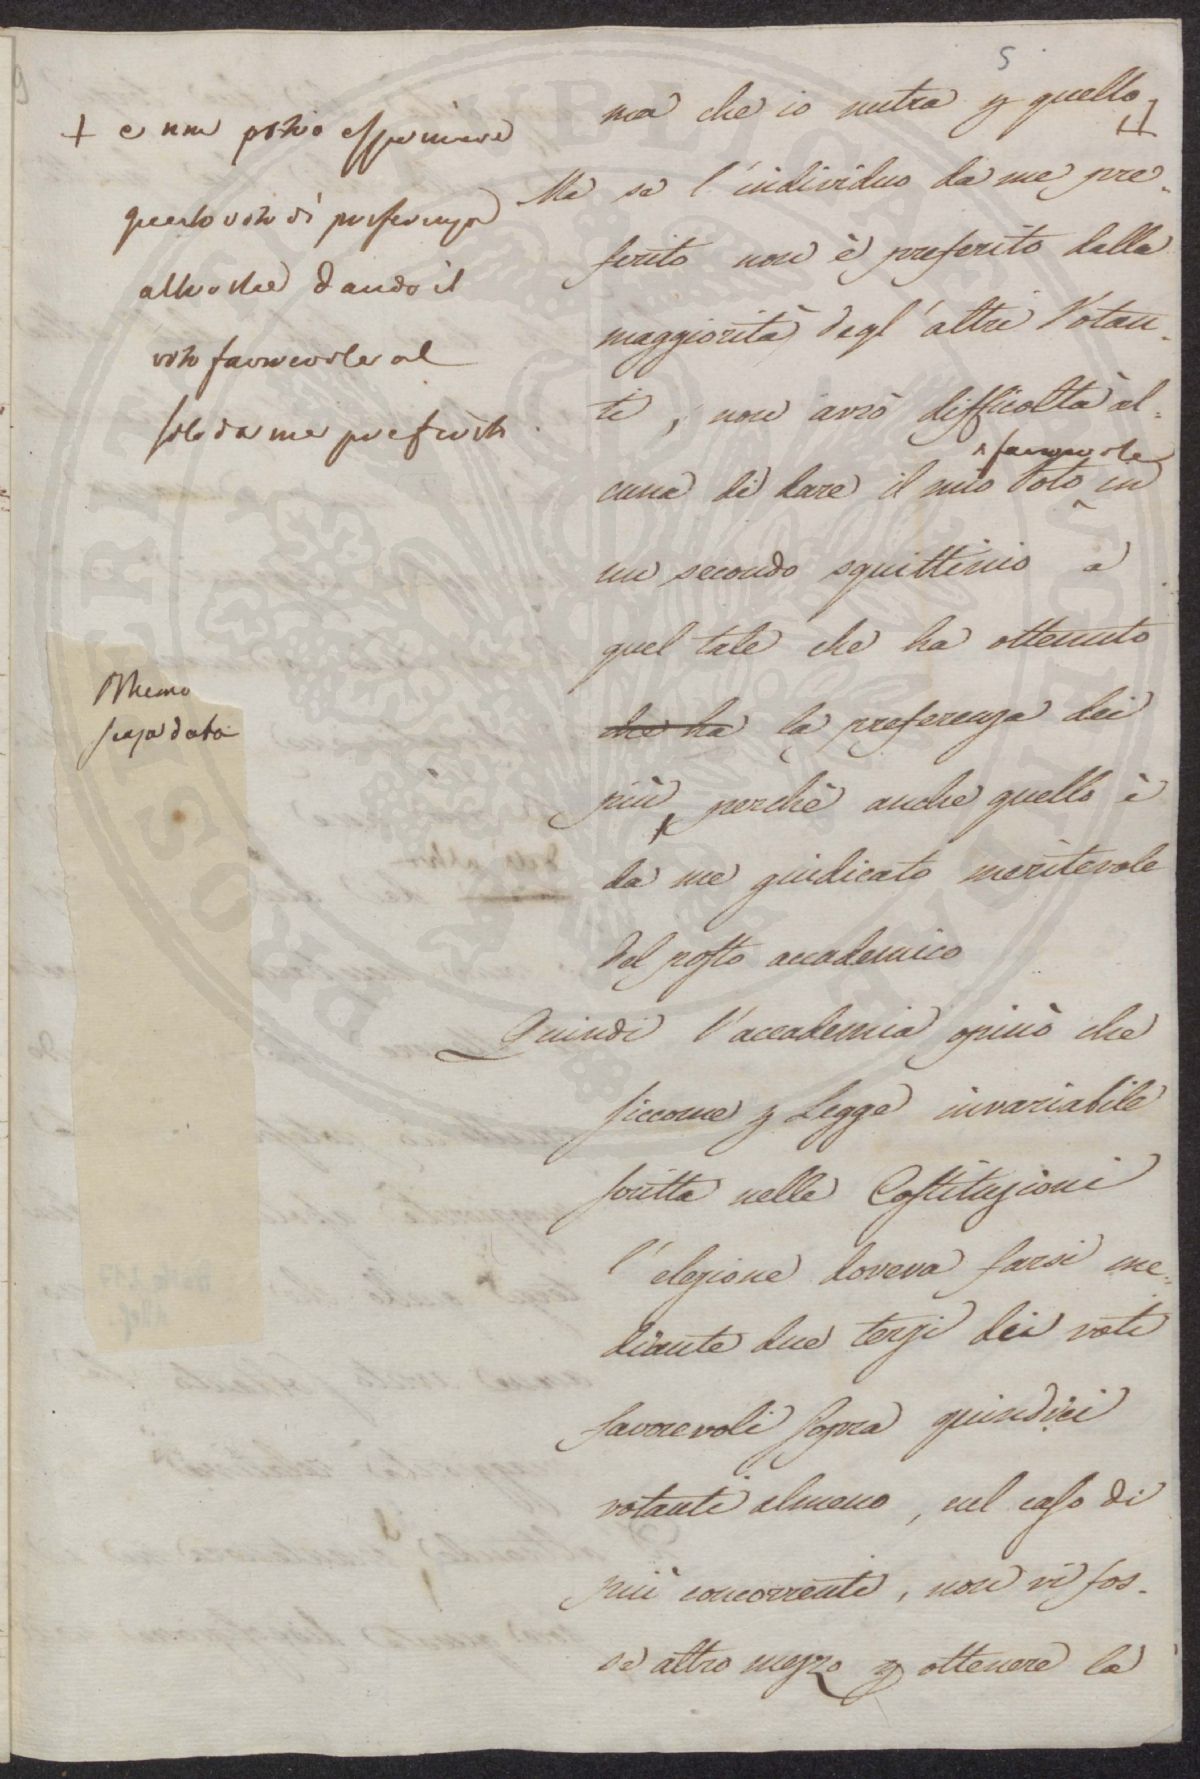 5
+ e non posso esprimere
questo voto di preferenza
altro che dando il
voto favorevole al
solo da me preferito.
Memo
senza data
ma che io nutra p quello +
Ma se l'individuo da me pre-
ferito non è preferito dalla
maggiorità degl'altri Votan-
ti, non avrò difficoltà al-
favorevole
cuna di dare il mio Voto in
un secondo squittinio a
quel tale che ha ottenuto
che ha la preferenza dei
più, perchè anche quello è
da me giudicato meritevole
del posto accademico
Quindi l'accademia opinò che
siccome p Legge invariabile
scritta nelle Costituzioni
l'elezione doveva farsi me-
diante due terzi dei voti
favorevoli sopra quindici
votanti almeno, nel caso di
più concorrenti, non vi fos-
se altro mezzo p ottenere la